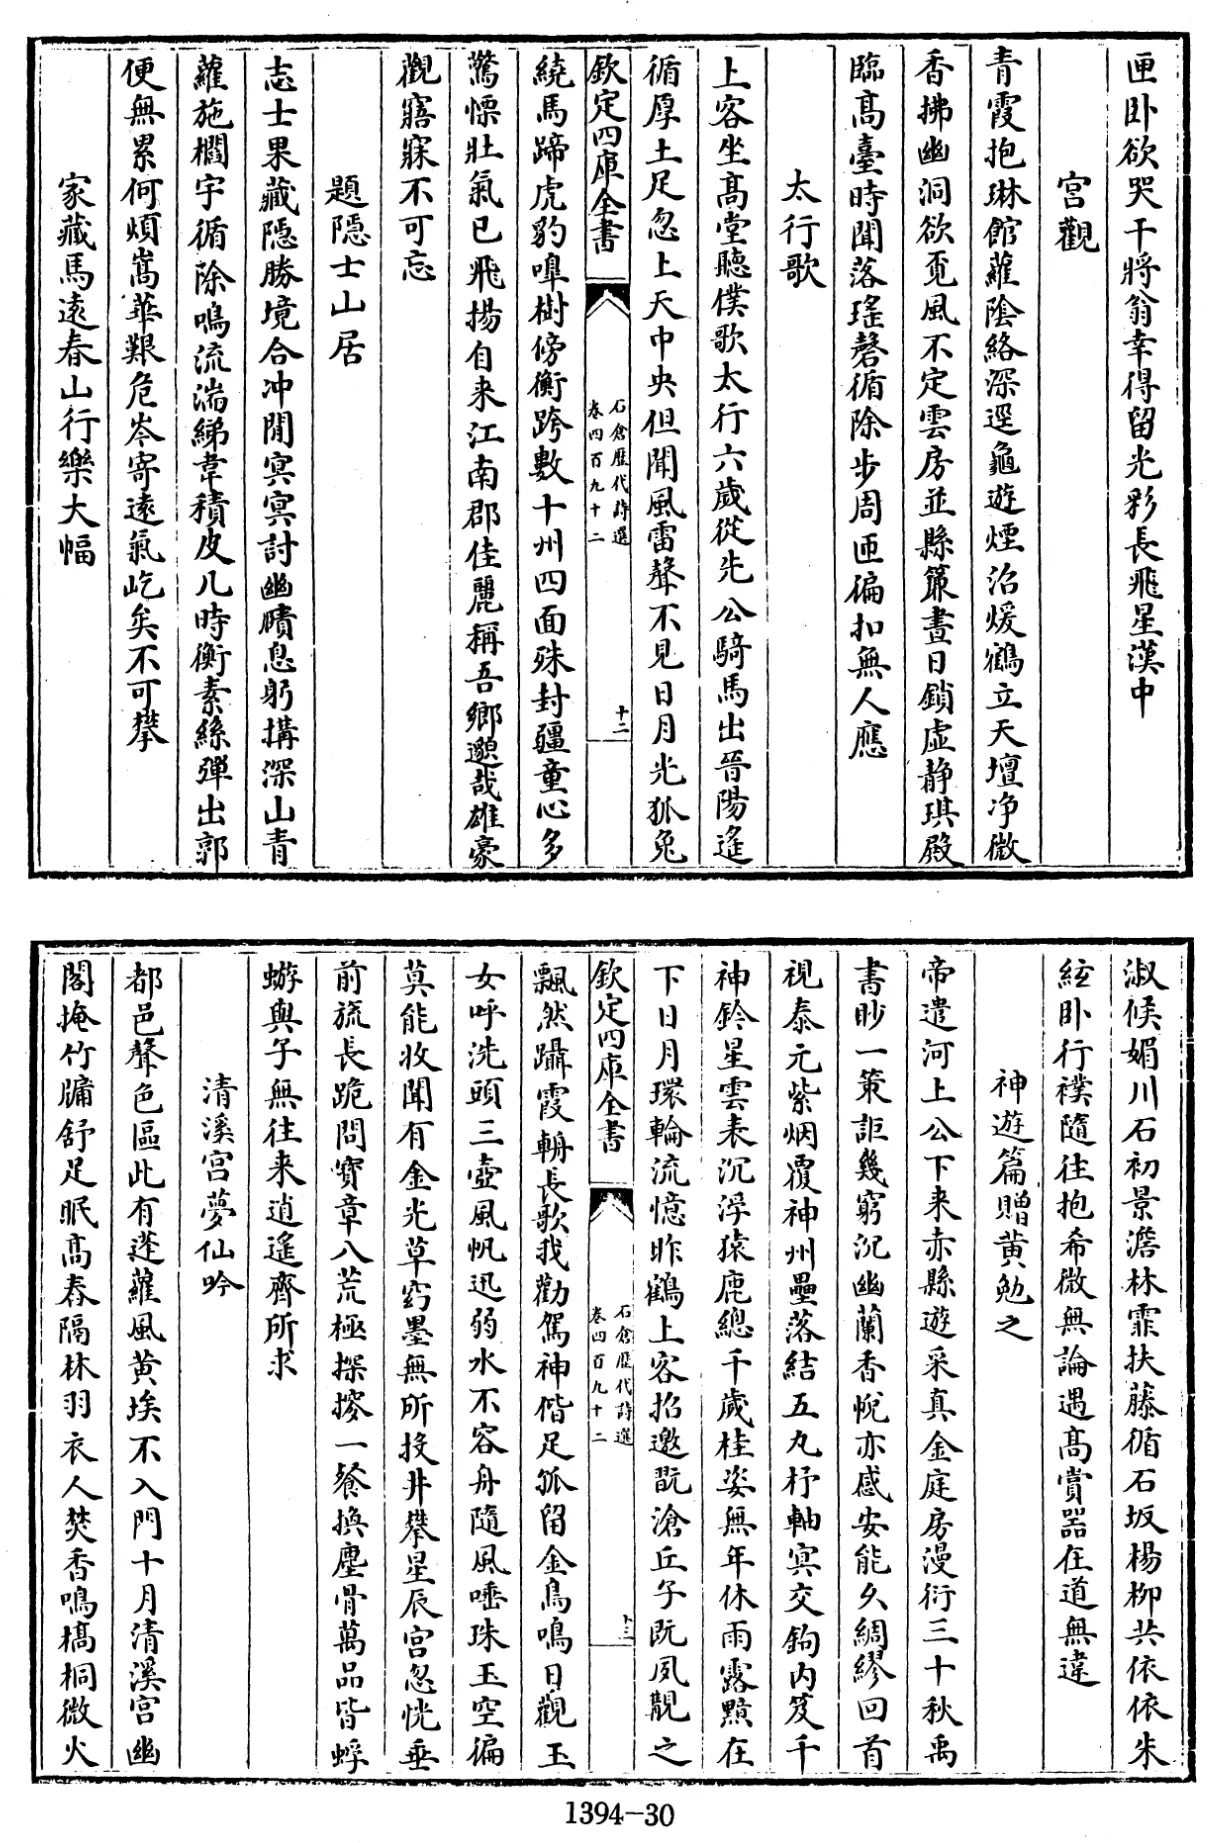 匣卧欲哭干將翁幸得留光彩長飛星漢中
宫觀
青霞抱琳館蘿陰絡深逕龜遊煙沼煖鶴立天壇净微
香拂幽洞欲覓風不定雲房並縣簾晝日鎖虛静琪殿
臨髙臺時聞落瑤磬循除步周匝徧扣無人應
太行歌
上客坐髙堂聽僕歌太行六歲從先公騎馬出晉陽遙
循厚土足忽上天中央但聞風雷聲不見日月光狐兔
欽定四庫全書
石倉歷代詩選
卷四百九十二
十二
繞馬蹄虎豹嘷樹傍衡跨數十州四面殊封疆童心多
驚慄壯氣已飛揚自来江南郡佳麗稱吾鄉邈哉雄豪
觀寤寐不可忘
題隱士山居
志士果藏隱勝境合冲閒冥冥討幽賾息躬搆深山青
蘿施櫩宇循除鳴流湍綈韋積皮几時衡素絲彈出郭
便無累何煩嵩華艱危岑寄遠氣屹矣不可攀
家藏馬遠春山行樂大幅
淑候媚川石初景澹林霏扶藤循石坂楊柳共依依朱
絃卧行襆隨往抱希微無論遇髙賞器在道無違
神遊篇贈黄勉之
帝遣河上公下来赤縣遊采真金庭房漫衍三十秋禹
書眇一策詎幾窮沉幽蘭香悅亦感安能久綢繆回首
視泰元紫烟覆神州壘落結五九杼軸冥交鉤内笈千
神鈴星雲表沉浮猿鹿總千歲桂姿無年休雨露黯在
下日月環輪流憶昨鶴上客招邀翫滄丘子阮夙覯之
欽定四庫全書
石倉歷代詩選
卷四百九十二
十三
飄然躡霞輈長歌我勸駕神偕足孤留金烏鳴日觀玉
女呼洗頭三壺風帆迅弱水不容舟隨風唾珠玉空徧
莫能收聞有金光草窈墨無所投井攀星辰宫忽恍垂
前旒長跪問寳章八荒極探搜一餐換塵骨萬品皆蜉
蝣與子無往来逍遙齊所求
清溪宫夢仙吟
都邑聲色區此有蓬蘿風黄埃不入門十月清溪宫幽
閣掩竹牗舒足眠髙舂隔林羽衣人焚香鳴槁桐微火
1394-30